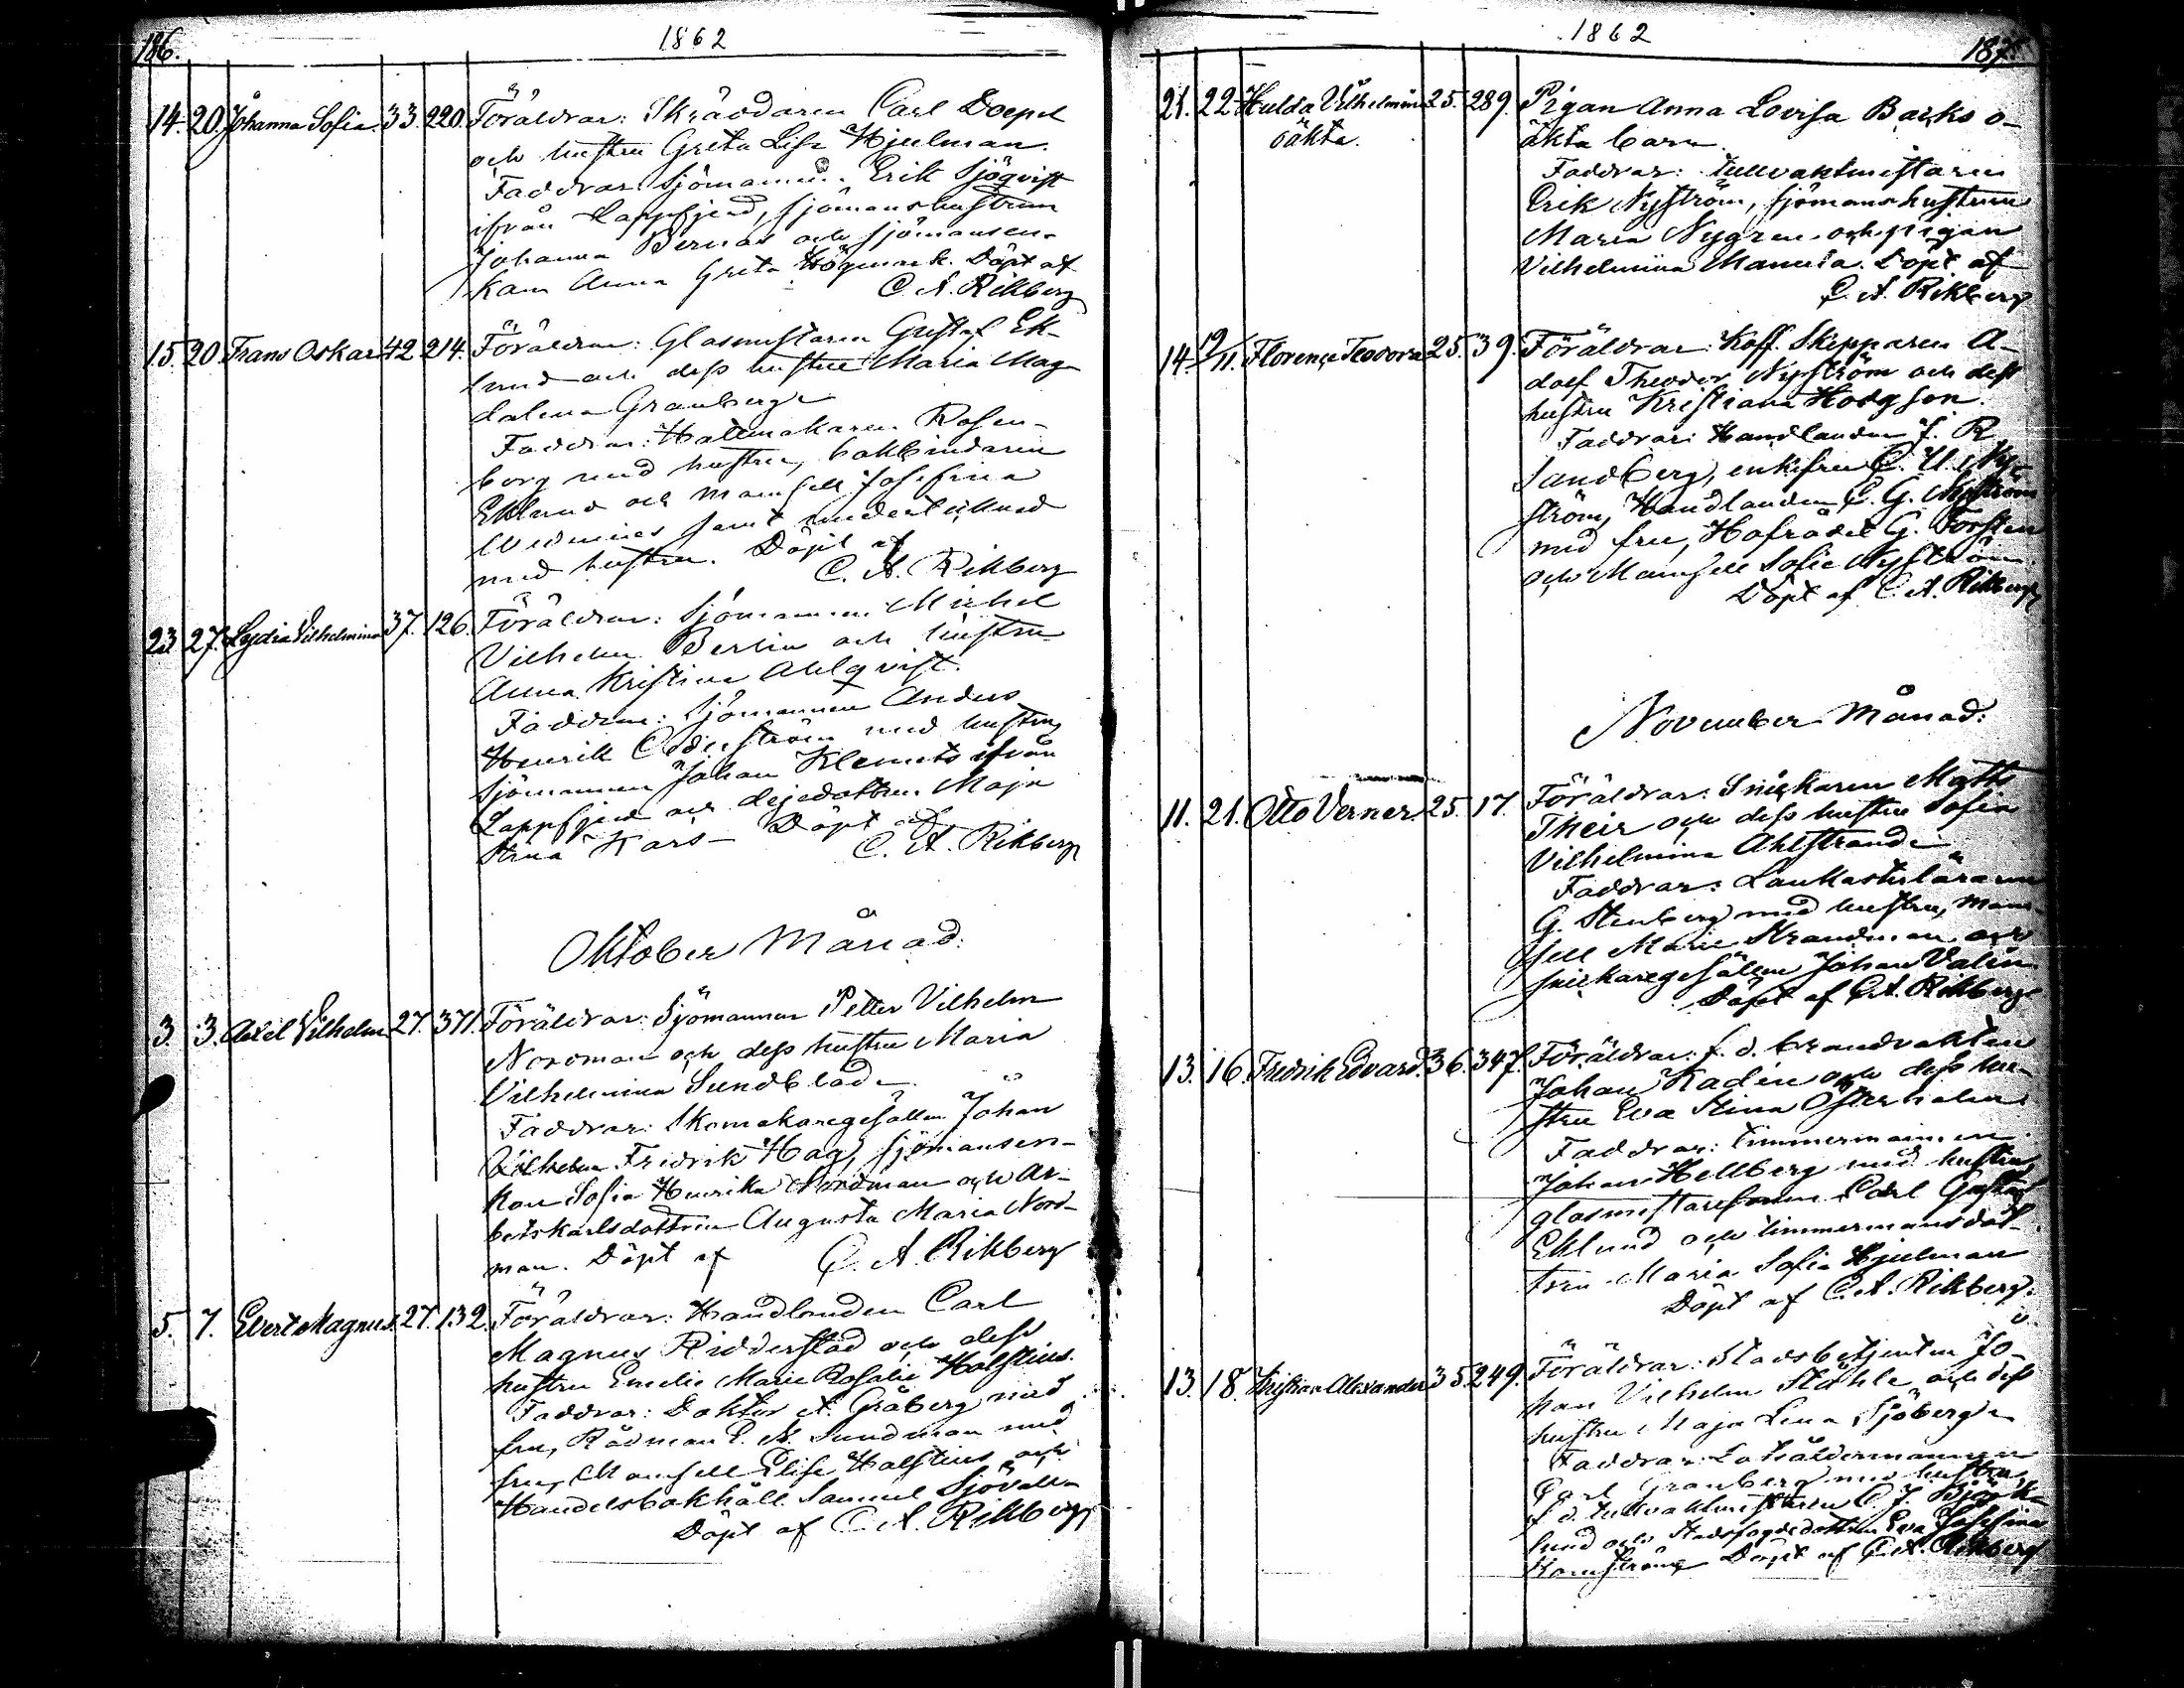 186.
1862
14. 20. Johanna Sofia. 33. 220. Föräldrar: Skräddaren Carl Doepel
och hustru Greta Lisa Hjulman.
Faddrar: Sjömannen Erik Sjöqvist
ifrån Lappfjerd, sjömanshustrun
Johanna Bernas och sjömansen-
kan Anna Greta Högmark. Döpt af
C. A. Rikberg
15. 20. Frans Oskar 42 214. Föräldrar: Glasmästaren Gustaf Ek-
lund och dess hustru Maria Mag-
dalena Granberg
Faddrar: Hattmakaren Rosen-
borg med hustru, bokbindaren
Eklund och mamsell Josefina
samt undertecknad
med hustru. Döpt af
C. A. Rikberg
23 27. Lydia Vilhelmina 37. 126. Föräldrar: Sjömannen Mickel
Vilhelm Berlin och hustru
Anna Kristina Ahlqvist.
Faddrar: Sjömannen Anders
Henrik Cederström med hustru,
sjömannen Johan Klemets ifrån
Lappfjerd och dejedottren Maja
Stina Kars Döpt af
C. A. Rikberg
Oktober Månad:
3. 3. Axel Vilhelm 27. 371. Föräldrar: Sjömannen Petter Vilhelm
Nordman och dess hustru Maria
Vilhelmina Sundblad
Faddrar: Skomakaregesällen Johan
Vilhelm Fredrik Hag, sjömansen-
kan Sofia Henrika Nordman och ar-
betskarlsdottren Augusta Maria Nord-
man. Döpt af C. A. Rikberg
5. 7. Evert Magnus. 27. 132. Föräldrar: Handlanden Carl
Magnus Ridderstad och dess
hustru Emelie Marie Rosalie Holstius.
Faddrar: Doktor A. Gråberg med
fru, Rådman E. A. Sundman med
fru, Mamsell Elise Holstius och
Handelsbokhåll. Samuel Sjövall
Döpt af C. A. Rikberg
1862
187.
21. 22. Hulda Vilhelmina 25. 289. Pigan Anna Lovisa Barks o-
oäkta. äkta barn.
Faddrar: Tullvaktmästaren
Erik Nyström, sjömanshustrun
Maria Nygren och pigan
Vilhelmina Manula. Döpt af
C. A. Rikberg
14. 19/11. Florence Teodora 25. 39. Föräldrar: Koff. Skepparen A-
dolf Theodor Nyström och dess
hustru Kristiana Hodgson.
Faddrar: Handlanden J. R.
Sandberg, enkefru C. U. Ny-
ström, Handlanden C. G. Nyström
med fru, Hofrådet G. Forsten
och Mamsell Sofie Nyström.
Döpt af C. A. Rikberg
November Månad:
11. 21. Otto Verner. 25. 17. Föräldrar: Snickaren Matts
Their och dess hustru Sofia
Vilhelmina Ahlstrand
Faddrar: Lankasterläraren
G. Stenberg med hustru, Mam-
sell Marie Strandman och
snickaregesällen Johan Valén.
Döpt af C. A. Rikberg
13. 16. Fredrik Edvard. 36. 347. Föräldrar: f. d. brandvakten
Johan Kadén och dess hu-
stru Eva Stina Österholm
Faddrar: Timmermannen
Johan Hellberg med hustru,
glasmästaresonen Carl Gustaf
Eklund och timmermansdot-
tren Maria Sofia Hjulman
Döpt af C. A. Rikberg.
13. 18. Kristian Alexander 35. 249. Föräldrar: Stadsbetjenten Jo-
han Vilhelm Ståhle och dess
hustru Maja Lena Sjöberg
Faddrar: Lotsåldermannen
Carl Granberg med hustru,
f. d. tullvaktmästaren C. J. Björk-
lund och stadsfogdedottren Eva Josefina
Kamström Döpt af C. A. Rikberg